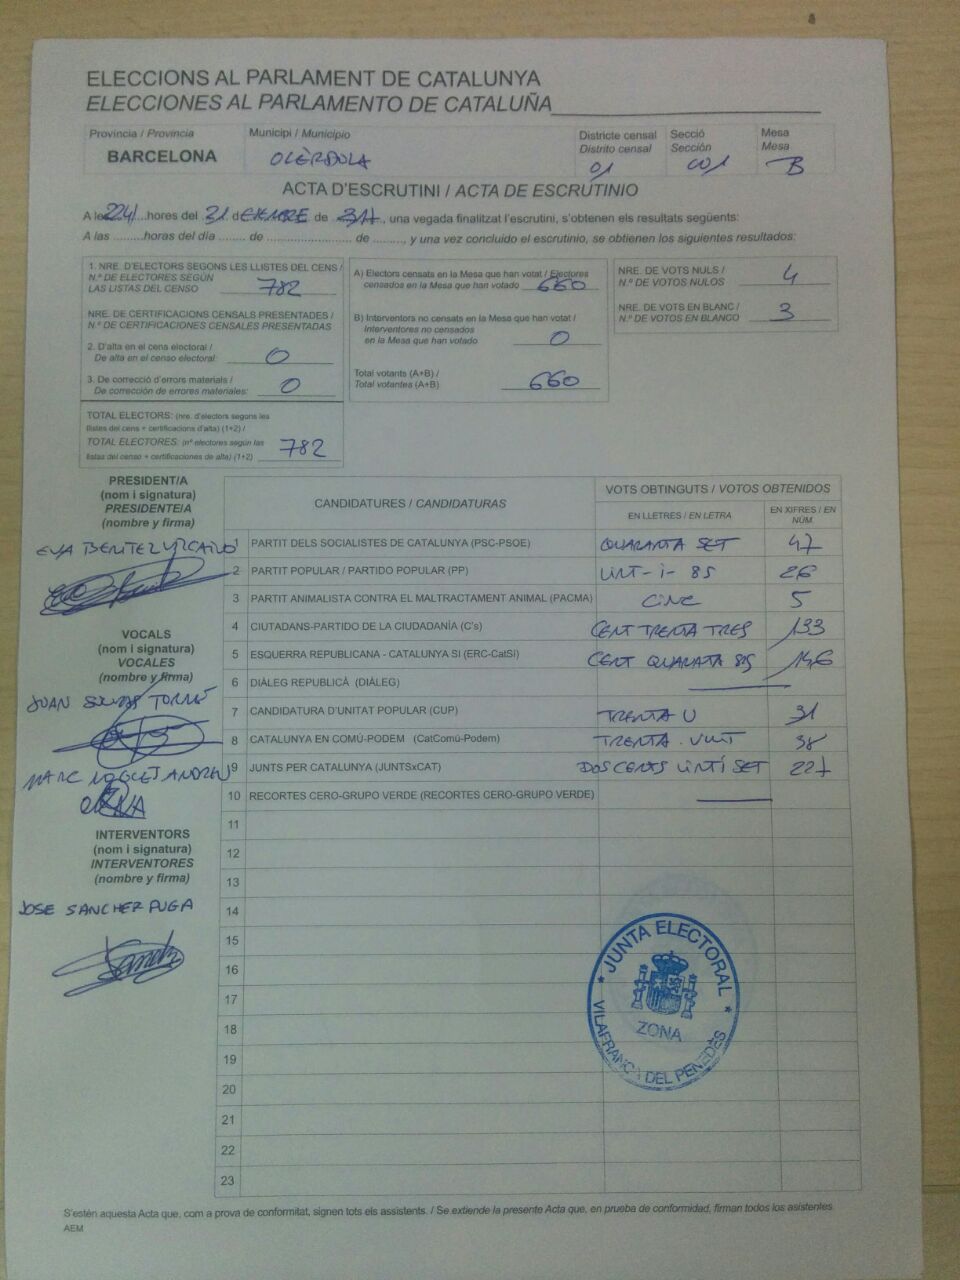 ELECCIONS AL PARLAMENT DE CATALUNYA
ELECCIONES AL PARLAMENTO DE CATALUÑA
Província / Provincia Municipi / Municipio Districte censal Secció Mesa
Distrito censal Sección Mesa
BARCELONA OLÈRDOLA 01 001 B
ACTA D'ESCRUTINI / ACTA DE ESCRUTINIO
A les 2241 hores del 21 de de 317, una vegada finalitzat l'escrutini, s'obtenen els resultats següents:
A las .........horas del día ........ de ......................... de ........., y una vez concluido el escrutinio, se obtienen los siguientes resultados:
1. NRE. D'ELECTORS SEGONS LES LLISTES DEL CENS /
N.º DE ELECTORES SEGÚN
LAS LISTAS DEL CENSO 782
NRE. DE CERTIFICACIONS CENSALS PRESENTADES /
N.º DE CERTIFICACIONES CENSALES PRESENTADAS
2. D'alta en el cens electoral /
De alta en el censo electoral: 0
3. De correcció d'errors materials /
De corrección de errores materiales: 0
TOTAL ELECTORS: (nre. d'electors segons les
llistes del cens + certificacions d'alta) (1+2) /
TOTAL ELECTORES: (nº electores según las
listas del censo + certificaciones de alta) (1+2) 782
A) Electors censats en la Mesa que han votat / Electores
censados en la Mesa que han votado 660
B) Interventors no censats en la Mesa que han votat /
Interventores no censados
en la Mesa que han votado 0
Total votants (A+B) /
Total votantes (A+B) 660
NRE. DE VOTS NULS /
N.º DE VOTOS NULOS 4
NRE. DE VOTS EN BLANC /
N.º DE VOTOS EN BLANCO 3
PRESIDENT/A
(nom i signatura)
PRESIDENTE/A
(nombre y firma)
EVA BENITEZ VIZCAINO
VOCALS
(nom i signatura)
VOCALES
(nombre y firma)
JUAN
MARC
INTERVENTORS
(nom i signatura)
INTERVENTORES
(nombre y firma)
JOSE SANCHEZ PUGA
CANDIDATURES / CANDIDATURAS VOTS OBTINGUTS / VOTOS OBTENIDOS
EN LLETRES / EN LETRA EN XIFRES / EN NÚM.
PARTIT DELS SOCIALISTES DE CATALUNYA (PSC-PSOE) QUARANTA SET 47
2 PARTIT POPULAR / PARTIDO POPULAR (PP) VINT-I-SIS 26
3 PARTIT ANIMALISTA CONTRA EL MALTRACTAMENT ANIMAL (PACMA) CINC 5
4 CIUTADANS-PARTIDO DE LA CIUDADANÍA (C's) CENT TRENTA TRES 133
5 ESQUERRA REPUBLICANA - CATALUNYA SÍ (ERC-CatSí) CENT QUARANTA SIS 146
6 DIÀLEG REPUBLICÀ (DIÀLEG)
7 CANDIDATURA D'UNITAT POPULAR (CUP) TRENTA U 31
8 CATALUNYA EN COMÚ-PODEM (CatComú-Podem) TRENTA VUIT 38
9 JUNTS PER CATALUNYA (JUNTSxCAT) DOS CENTS VINT I SET 227
10 RECORTES CERO-GRUPO VERDE (RECORTES CERO-GRUPO VERDE)
11
12
13
14
15
16
17
18
19
20
21
22
23
JUNTA ELECTORAL
ZONA
VILAFRANCA DEL PENEDÈS
S'estén aquesta Acta que, com a prova de conformitat, signen tots els assistents. / Se extiende la presente Acta que, en prueba de conformidad, firman todos los asistentes.
AEM